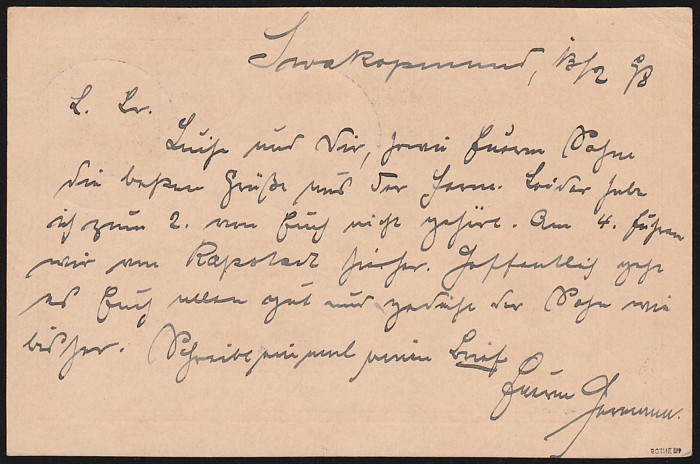 Swakopmund, 13/2 98
L. Br.
Luise und Dir, sowie Eurem Sohne
die besten Grüße aus der Ferne. Leider habe
ich zum 2. von Euch nicht gehört. Am 4. fuhren
wir von Kapstadt hierher. Hoffentlich geht
es Euch allen gut und gedeiht der Sohn wie
bisher. Schreibt einmal einen Brief
Eurem Hermann.
ROTHE BPP